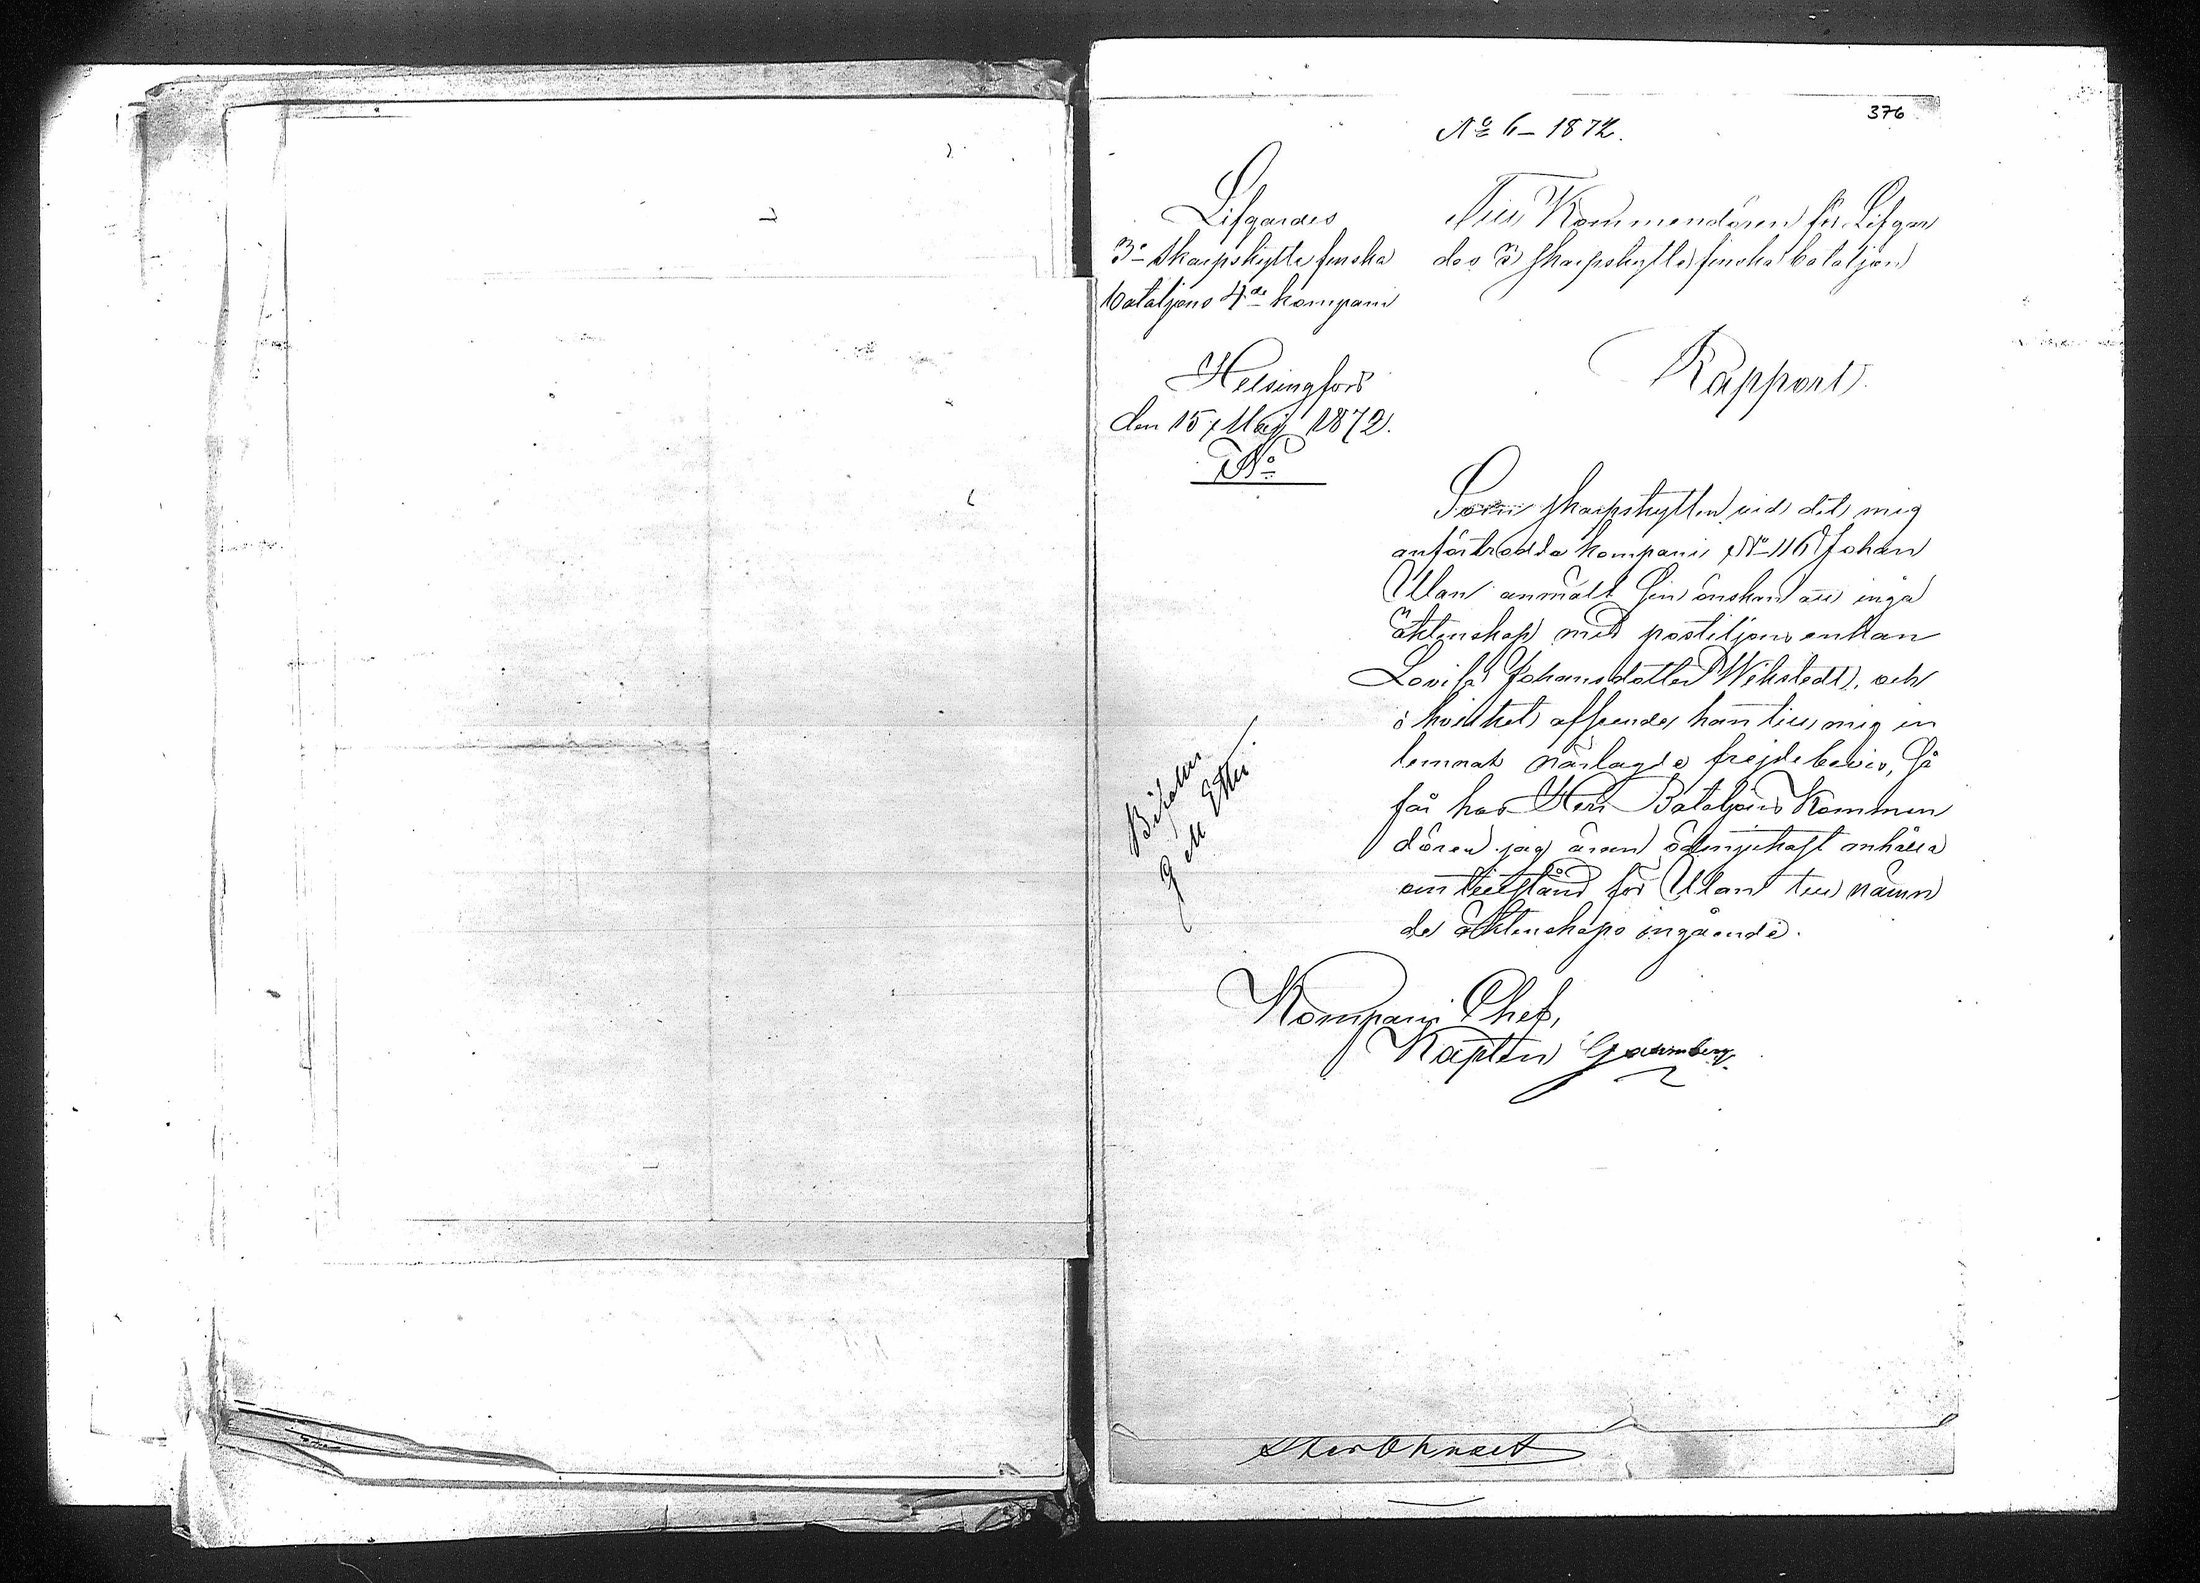 376
No 6 – 1872.
Lifgardes
3e skarpskytte finska
bataljons 4de kompani
Helsingfors
den 15 Maj 1872.
No
Till Kommendören för Lifgar
des 3e skarpskytte finska bataljon
Rapport.
Som skarpskytten vid det mig
anförtrodda kompani No 116 Johan
Ulan anmält sin önskan att ingå
äktenskap med postiljons enkan
Lovisa Johansdotter Wikstedt, och
i hvilket afseende han till mig in
lemnat närlagde frejdebevis, Så
får hos Herr Bataljons Kommen
dören jag äran ödmjukast anhålla
om tillstånd för Ulan till nämn
de äktenskaps ingående.
Bifalles
Kompani Chef,
Kapten